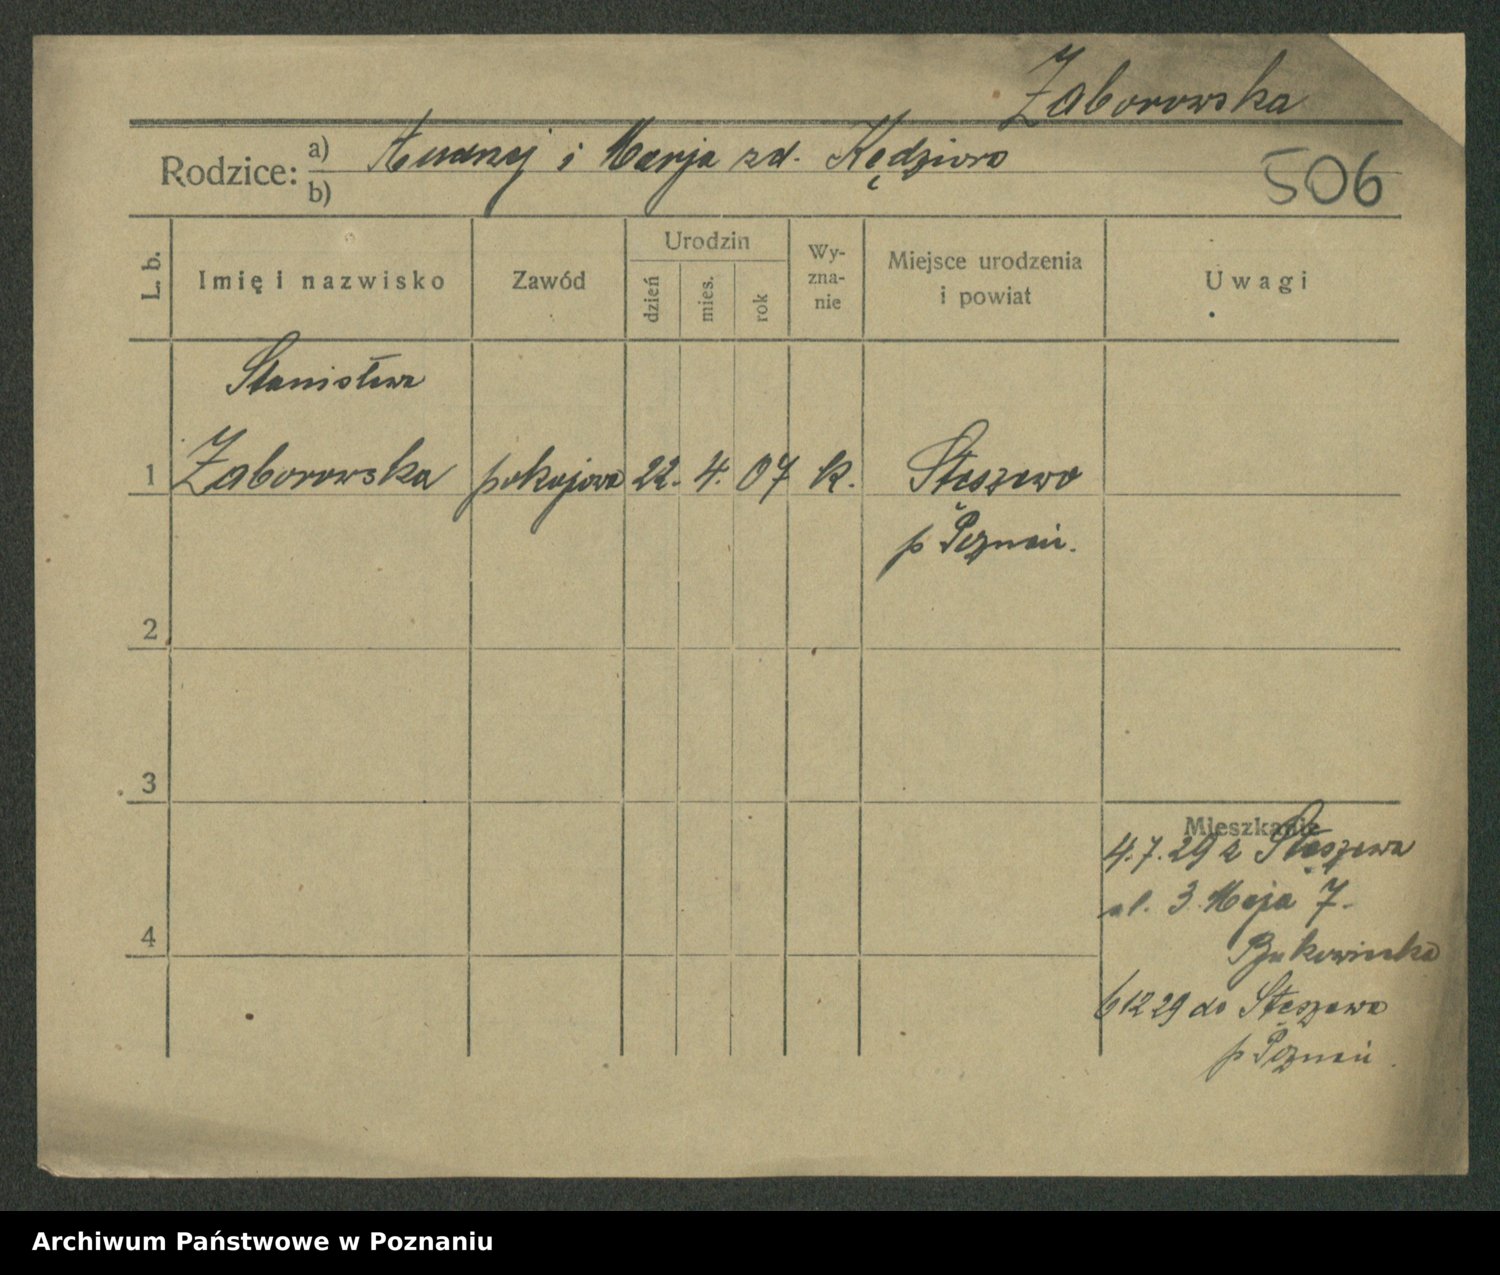 Zaborowska
Rodzice: a) Andrzej i Marja zd. Kędziora
b)
506
L. b.
Imię i nazwisko
Zawód
Urodzin
dzień
mies.
rok
Wy-
zna-
nie
Miejsce urodzenia
i powiat
Uwagi
Stanisława
1 Zaborowska pokojowa 22. 4. 07 k. Stęszewo
p Poznań.
2
3
4
Mieszkanie
4.7.29 z Stęszewa
ul. 3 Maja 7.
6 12 29 do Stęszewa
p Poznań
Archiwum Państwowe w Poznaniu